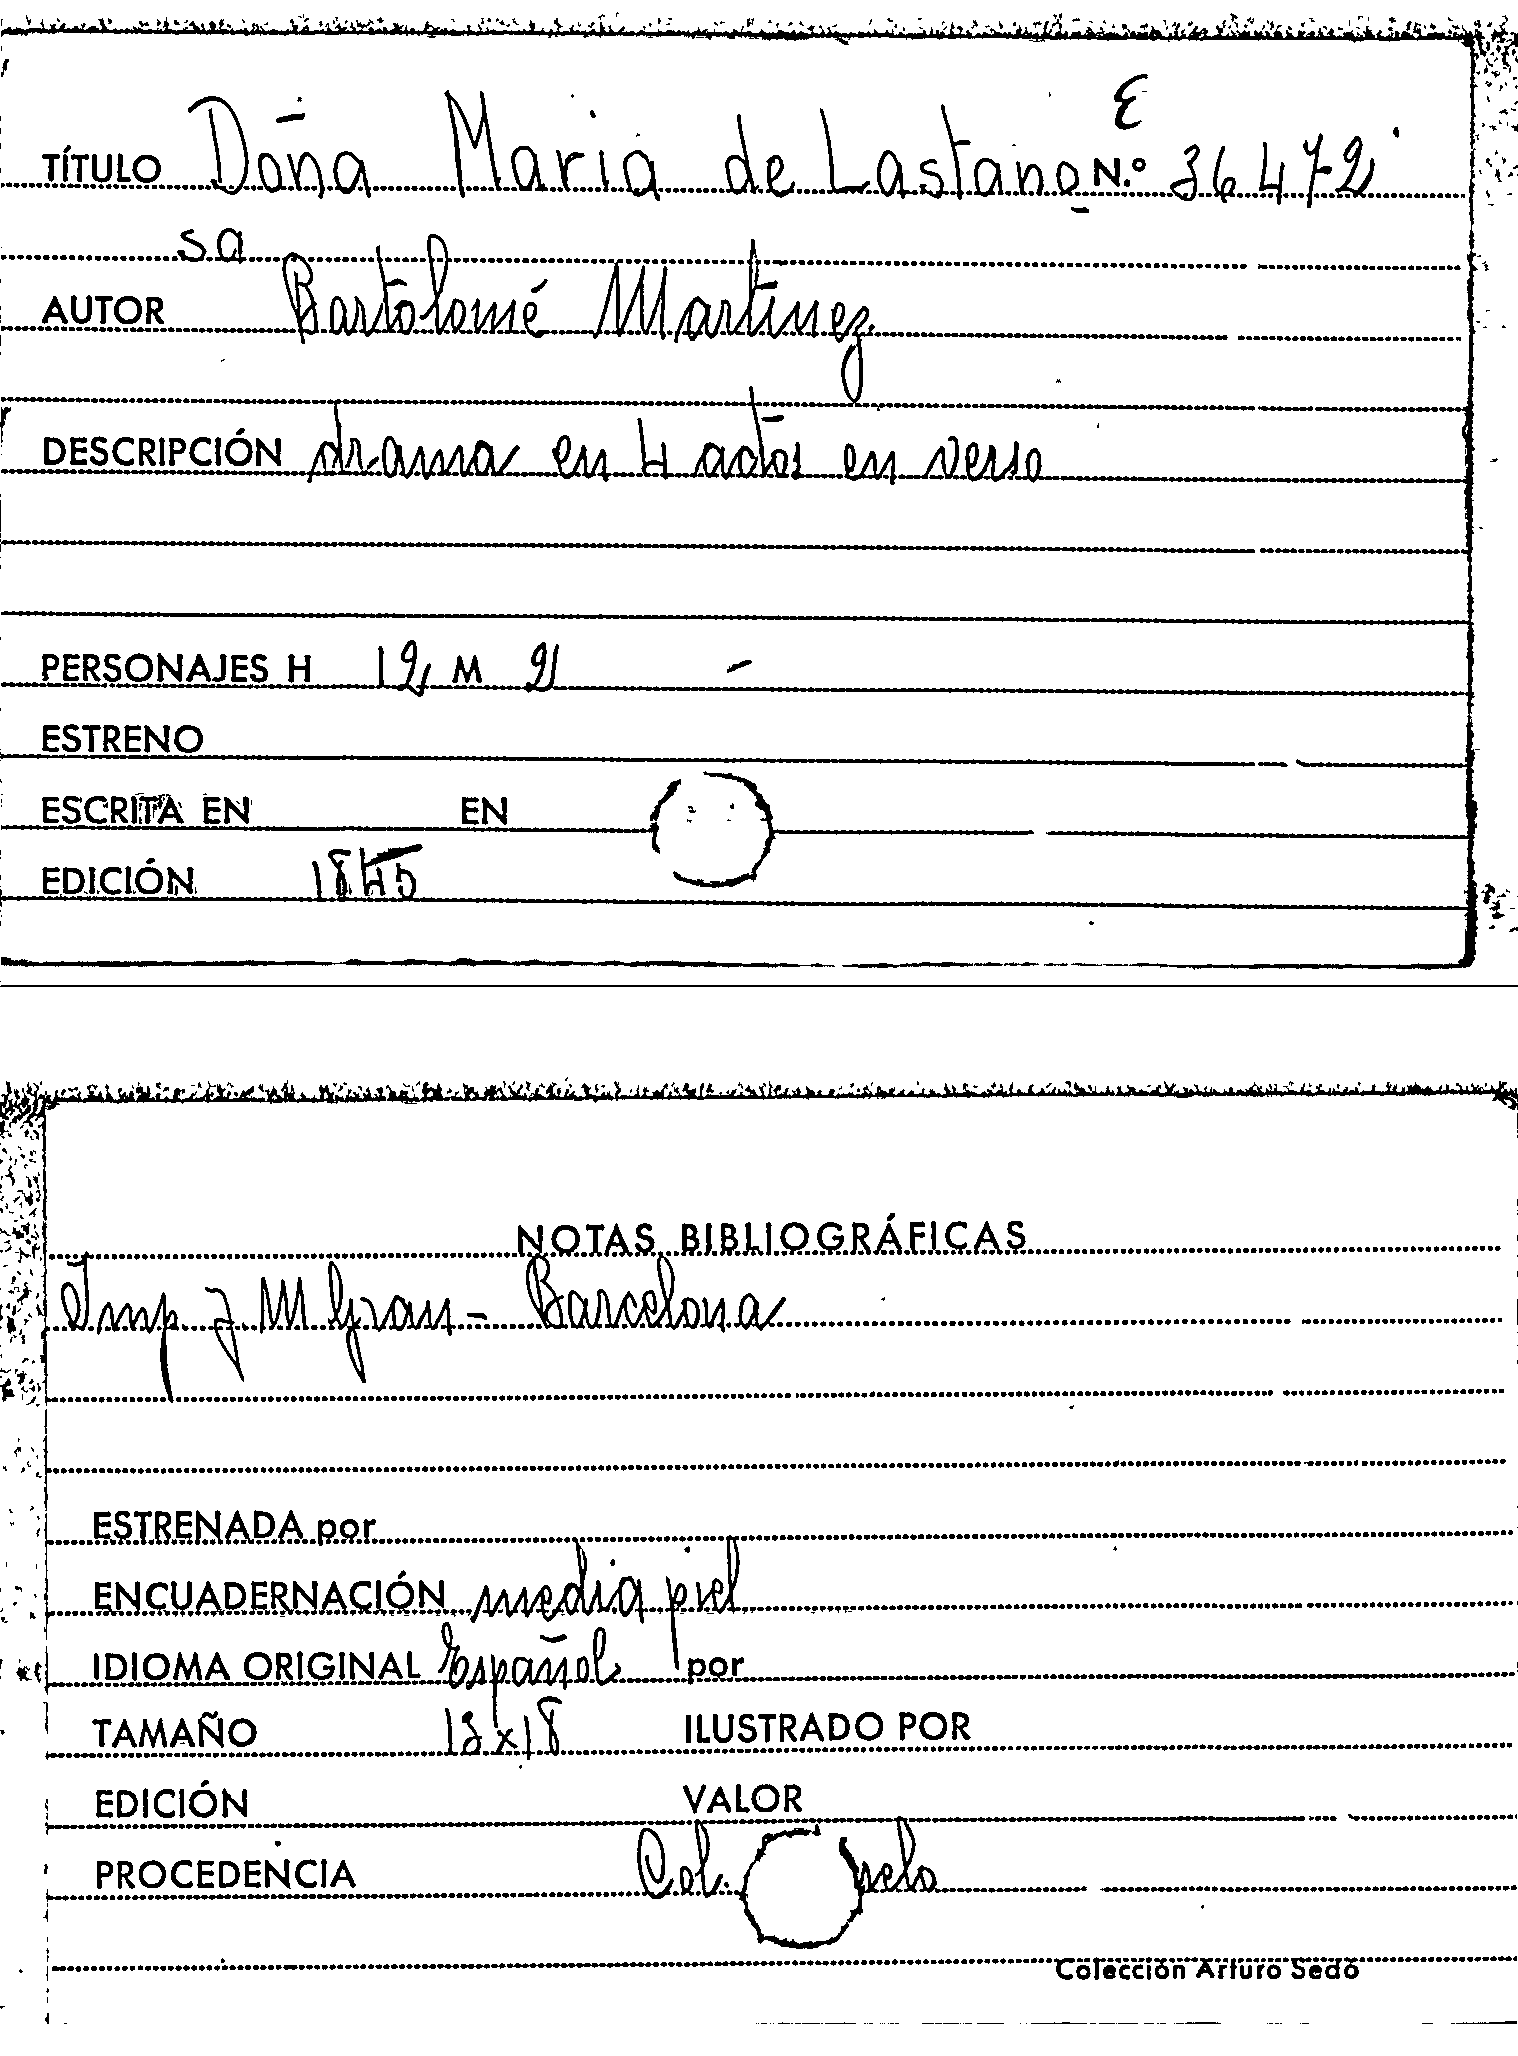 E
TÍTULO Doña Maria de Lastano N.º 36472
sa
AUTOR Bartolomé Martinez
DESCRIPCIÓN drama en 4 actos en verso
PERSONAJES H 12 M 2
ESTRENO
ESCRITA EN EN
EDICIÓN 1845
NOTAS BIBLIOGRÁFICAS
Imp. J. M Grau - Barcelona
ESTRENADA por
ENCUADERNACIÓN media piel
IDIOMA ORIGINAL Español por
TAMAÑO 12x18 ILUSTRADO POR
EDICIÓN VALOR
PROCEDENCIA Col.
Colección Arturo Sedó